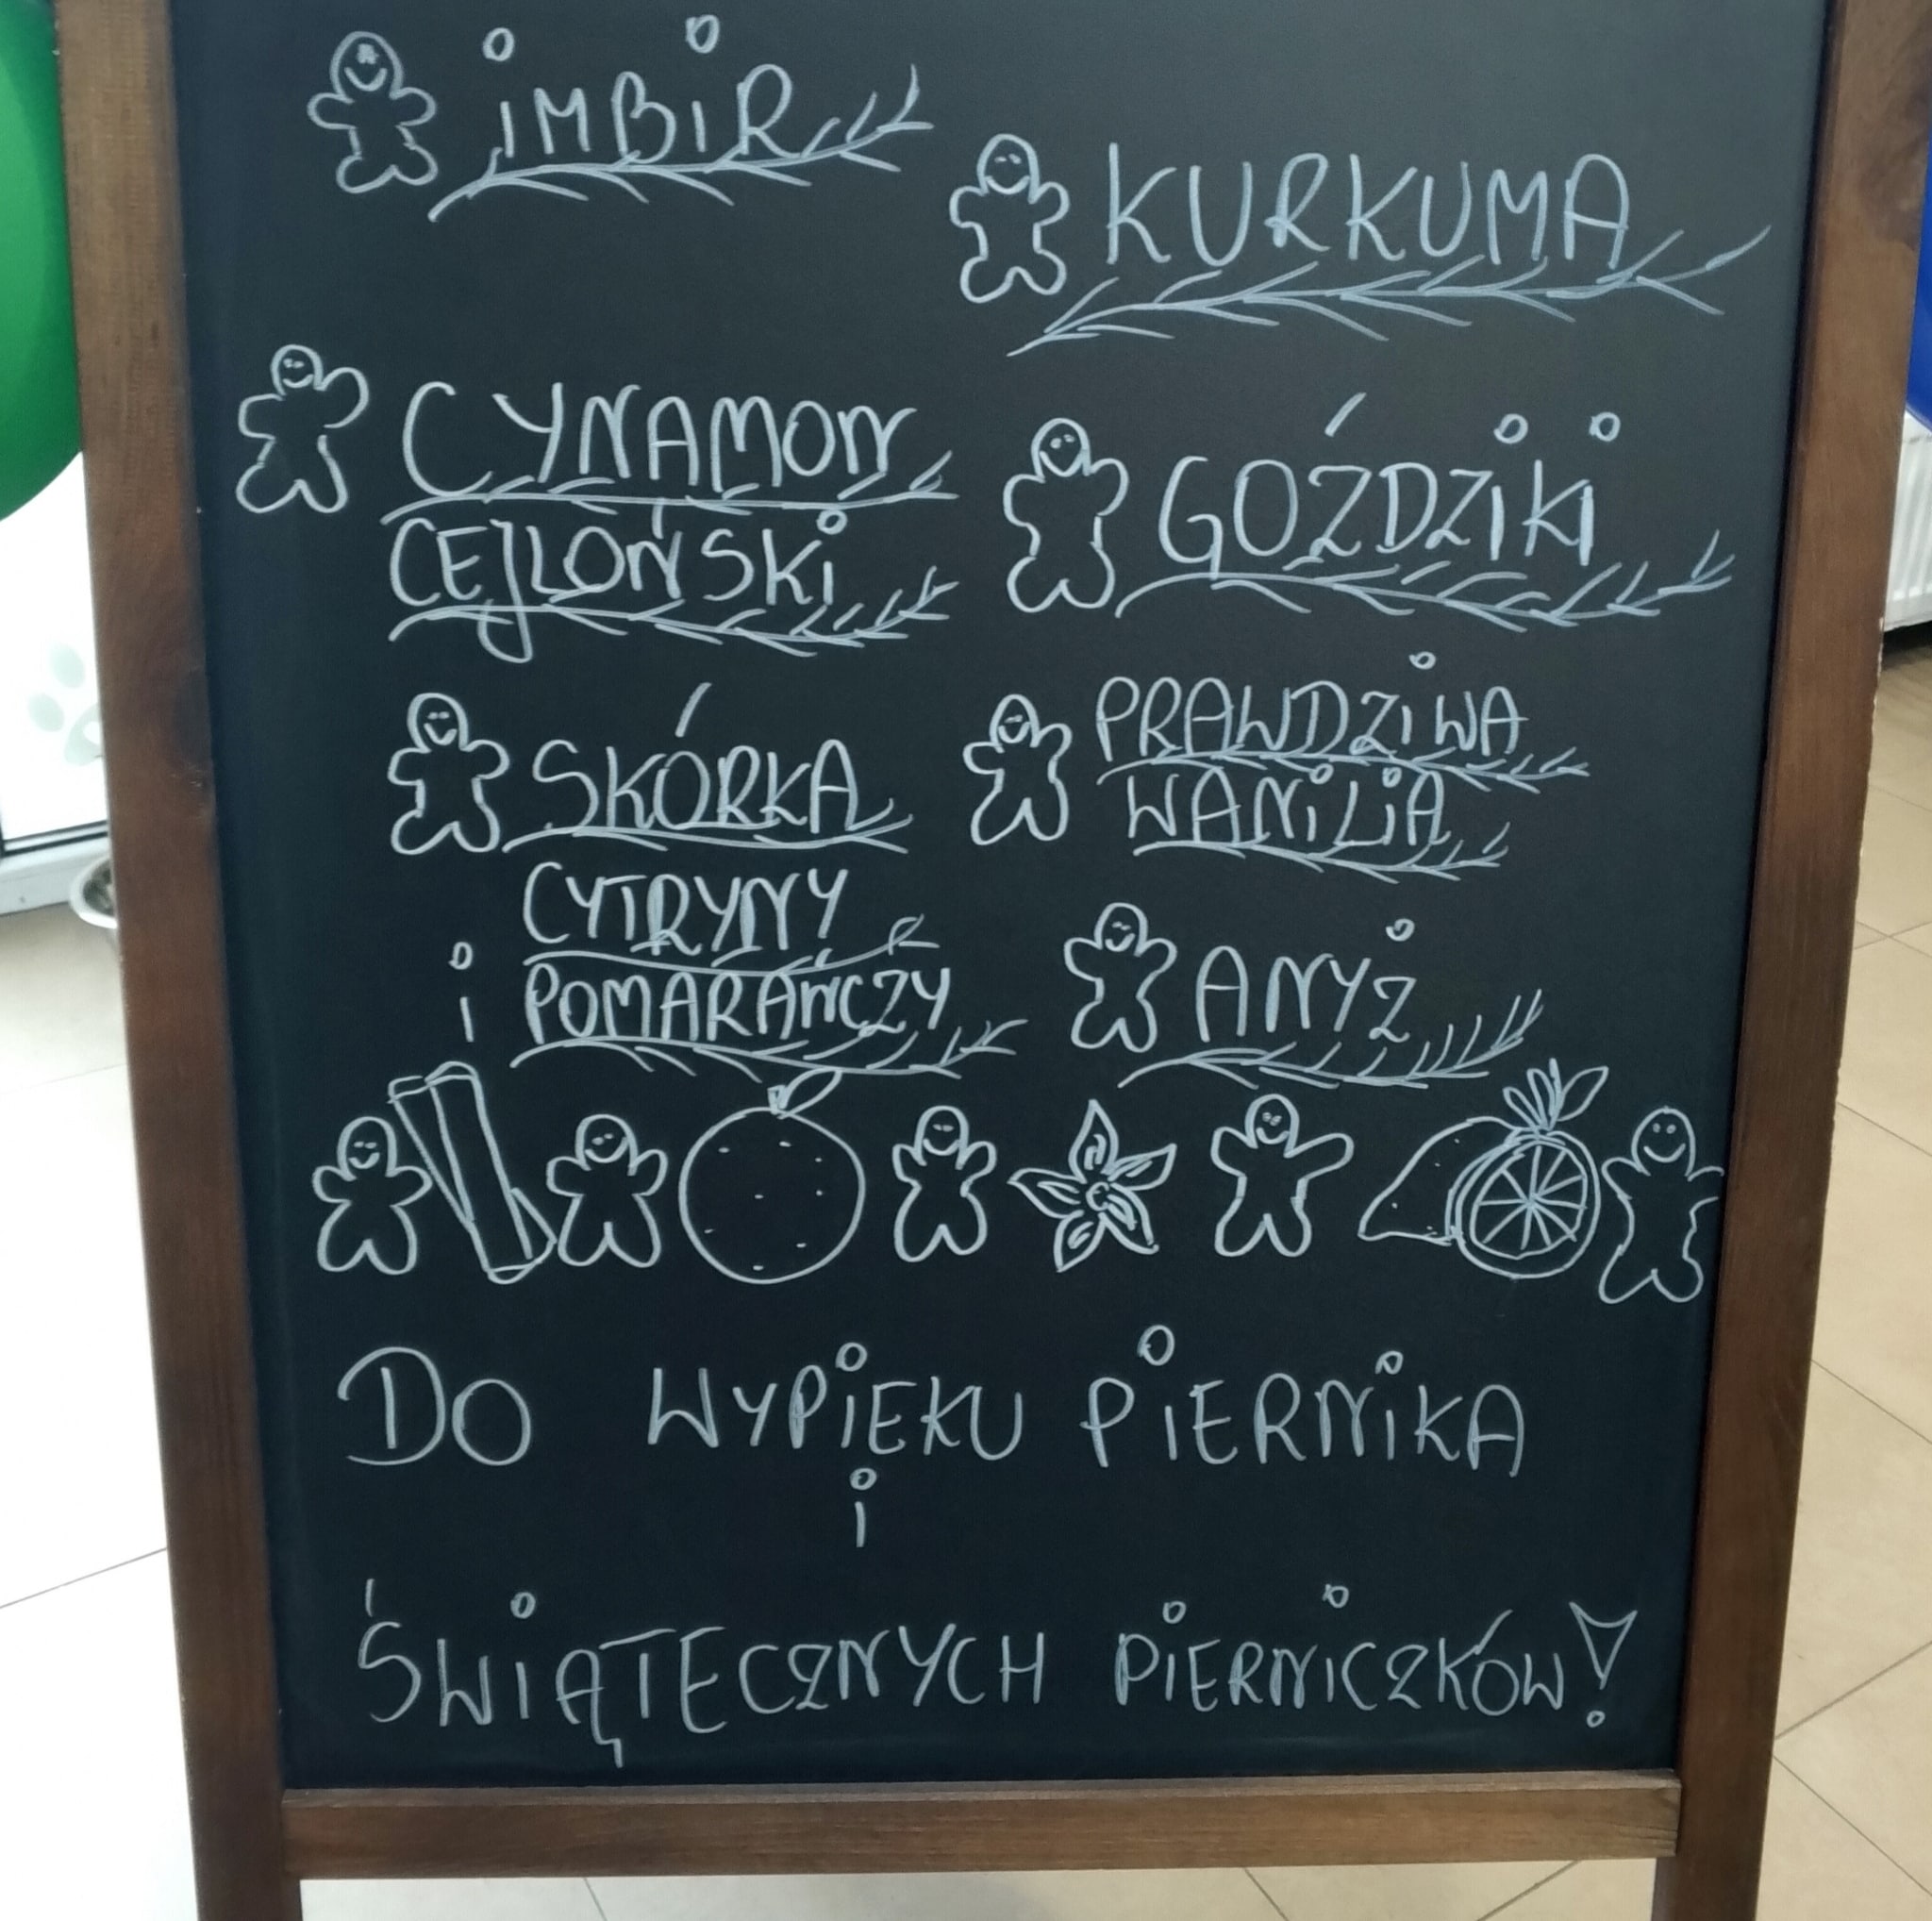 iMBiR
KURKUMA
CYNAMON
CEJLOŃSKi
GOŹDZiKi
SKÓRKA
CYTRYNY
i POMARAŃCZY
PRAWDZiWA
WANiLiA
ANYŻ
DO WYPiEKU PiERNiKA
i
ŚWiĄTECZNYCH PiERNiCZKÓW!